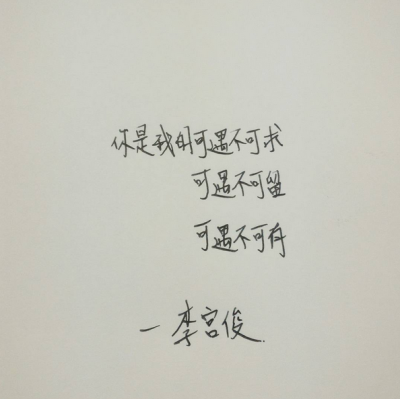 你是我的可遇不可求
可遇不可留
可遇不可有
一李宫俊.